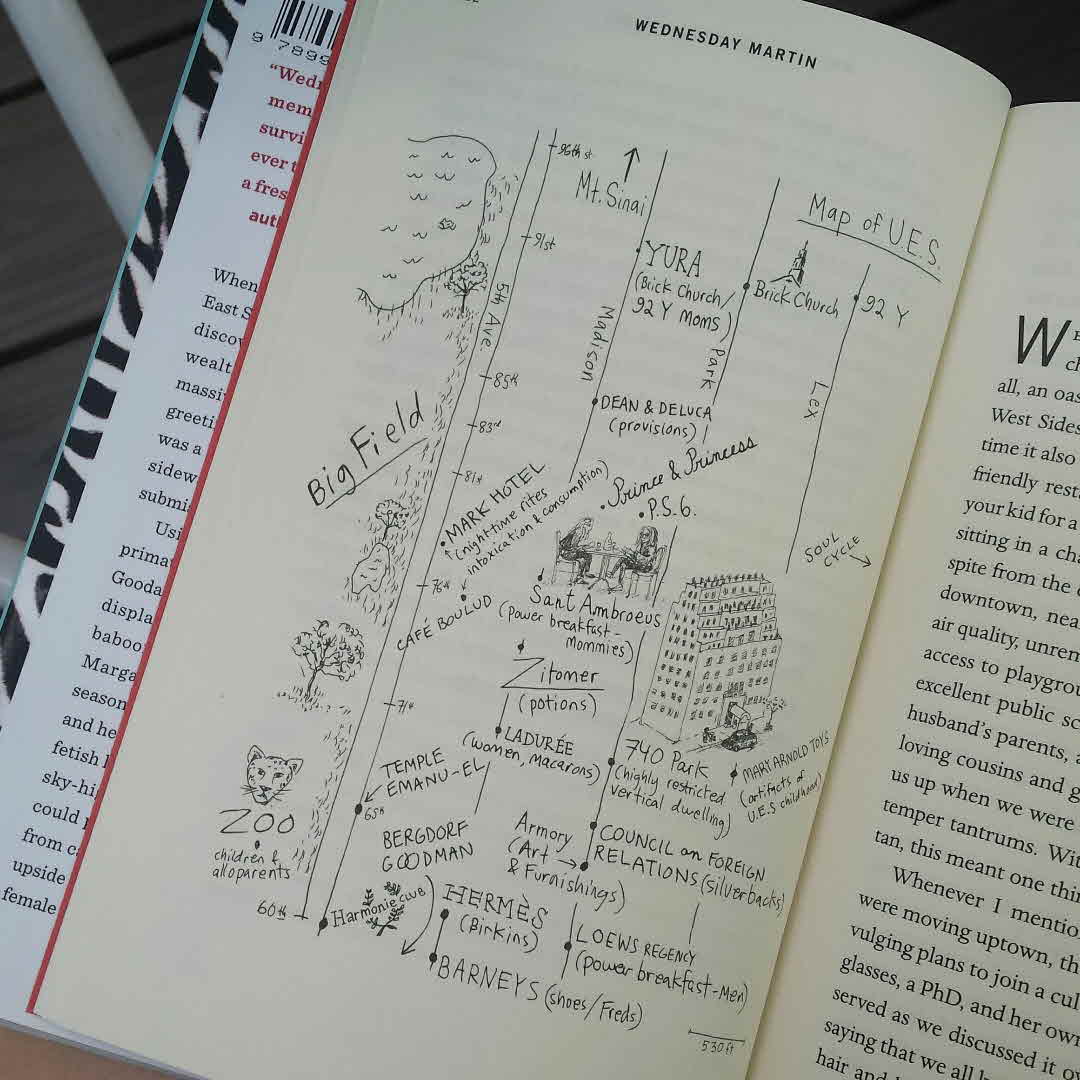 9 7899
"Wedn
mem
survi
ever t
a fres
aut
When
East S
discov
wealt
massi
greeti
was a
sidew
submi
Usi
prima
Gooda
displa
baboo
Marga
season
and he
fetish
sky-hi
could
from c
upside
female
WEDNESDAY MARTIN
Map of U.E.S.
96th st
Mt. Sinai
91st
YURA
(Brick Church/
92 Y Moms)
Brick Church
92 Y
5th Ave.
Madison
Park
Lex
85th
DEAN & DELUCA
(provisions)
83rd
Big Field
81st
Prince & Princess
P.S.6.
MARK HOTEL
(nighttime rites
intoxication & consumption)
SOUL
CYCLE
76th
CAFÉ BOULUD
Sant Ambroeus
(power breakfast-
mommies)
Zitomer
(potions)
71st
LADURÉE
(women, macarons)
740 Park
(highly restricted
vertical dwelling)
MARY ARNOLD TOYS
(artifacts of
U.E.S childhood)
TEMPLE
EMANU-EL
65th
ZOO
children &
alloparents
BERGDORF
GOODMAN
Armory
(Art
& Furnishings)
COUNCIL on FOREIGN
RELATIONS (silverbacks)
60th
Harmonie CLUB
HERMÈS
(Birkins)
LOEWS REGENCY
(power breakfast-Men)
BARNEYS (shoes/Freds)
530 ft
W
all, an oas
West Sides
time it also
friendly rest
your kid for a
sitting in a cha
spite from the
downtown, nea
air quality, unren
access to playgrou
excellent public sc
husband's parents, a
loving cousins and g
us up when we were
temper tantrums. Wit
tan, this meant one thin
Whenever I mentio
were moving uptown, th
vulging plans to join a cul
glasses, a PhD, and her own
served as we discussed it ov
saying that we all
hair and